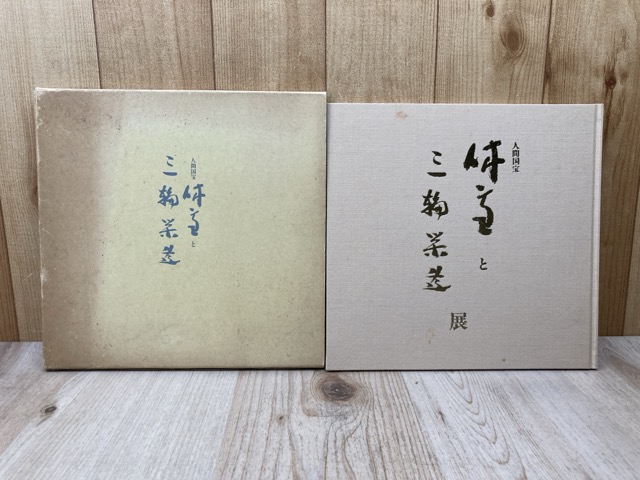 人間国宝
休雪と
三輪栄造
人間国宝
休雪と
三輪栄造
展